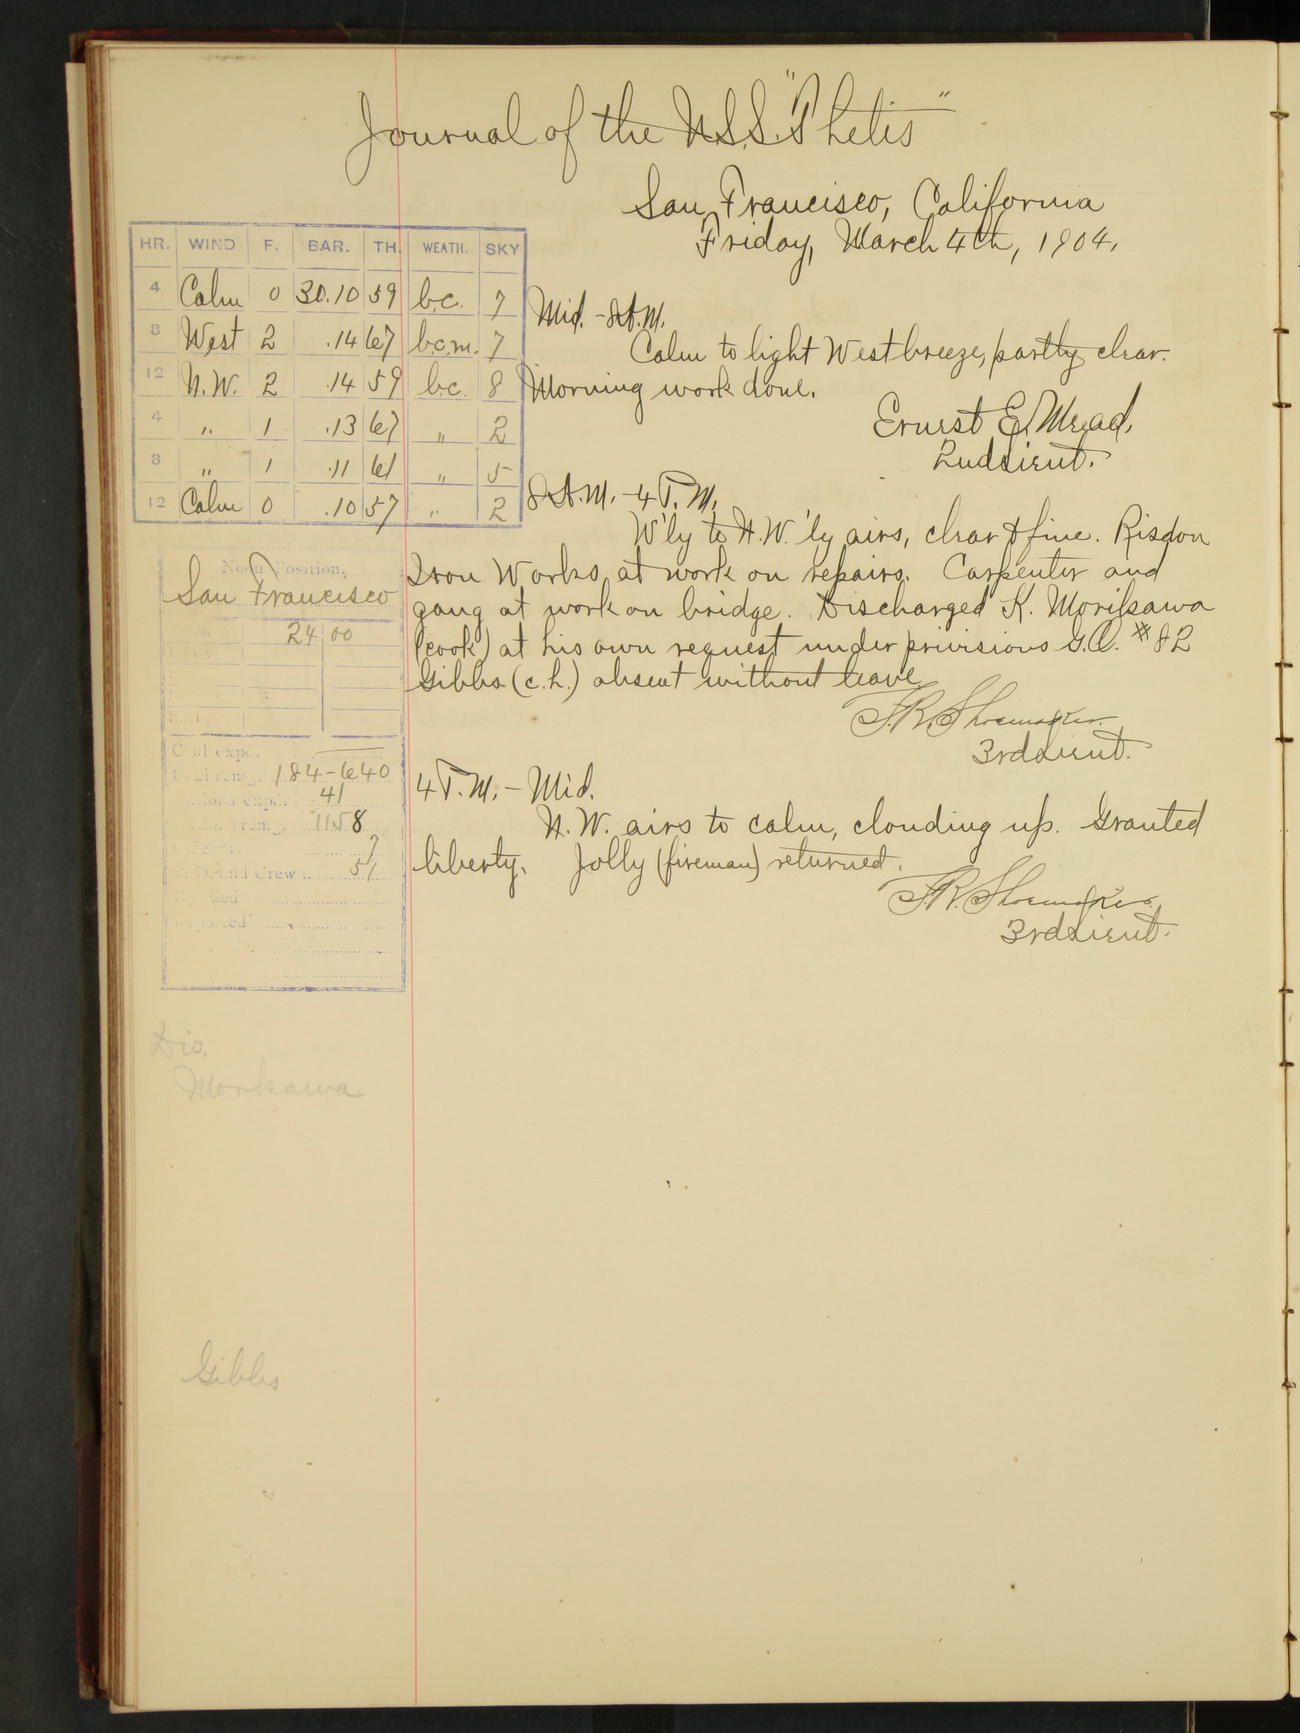 Journal of the U.S.S. "Thetis"
San Francisco, California
Friday, March 4th, 1904.
HR. WIND F. BAR. TH. WEATH. SKY
4 Calm 0 30.10 59 b.c. 7
8 West 2 .14 67 b.c.m. 7
12 N.W. 2 .14 59 b.c. 8
4 " 1 .13 67 " 2
8 " 1 .11 61 " 5
12 Calm 0 .10 57 " 2
Mid. - 8 A.M.
Calm to light West breeze, partly clear.
Morning work done.
Ernest E. Mead,
2nd Lieut.
8 A.M. - 4 P.M.
W'ly to N.W.'ly airs, clear & fine. Risdon
Iron Works at work on repairs. Carpenter and
gang at work on bridge. Discharged K. Morikawa
(cook) at his own request under privisions G.O. # 82
Gibbs (c.h.) absent without leave
F.R. Shoemaker.
3rd Lieut.
4 P.M. - Mid.
N.W. airs to calm, clouding up. Granted
liberty. Jolly (fireman) returned.
F.R. Shoemaker.
3rd Lieut.
Noon Position.
San Francisco
24 00
Coal expd.
Coal remg. 184-640
expd. 41
remg. 1158
7
and Crew .. 51
Dis.
Morkawa
Gibbs